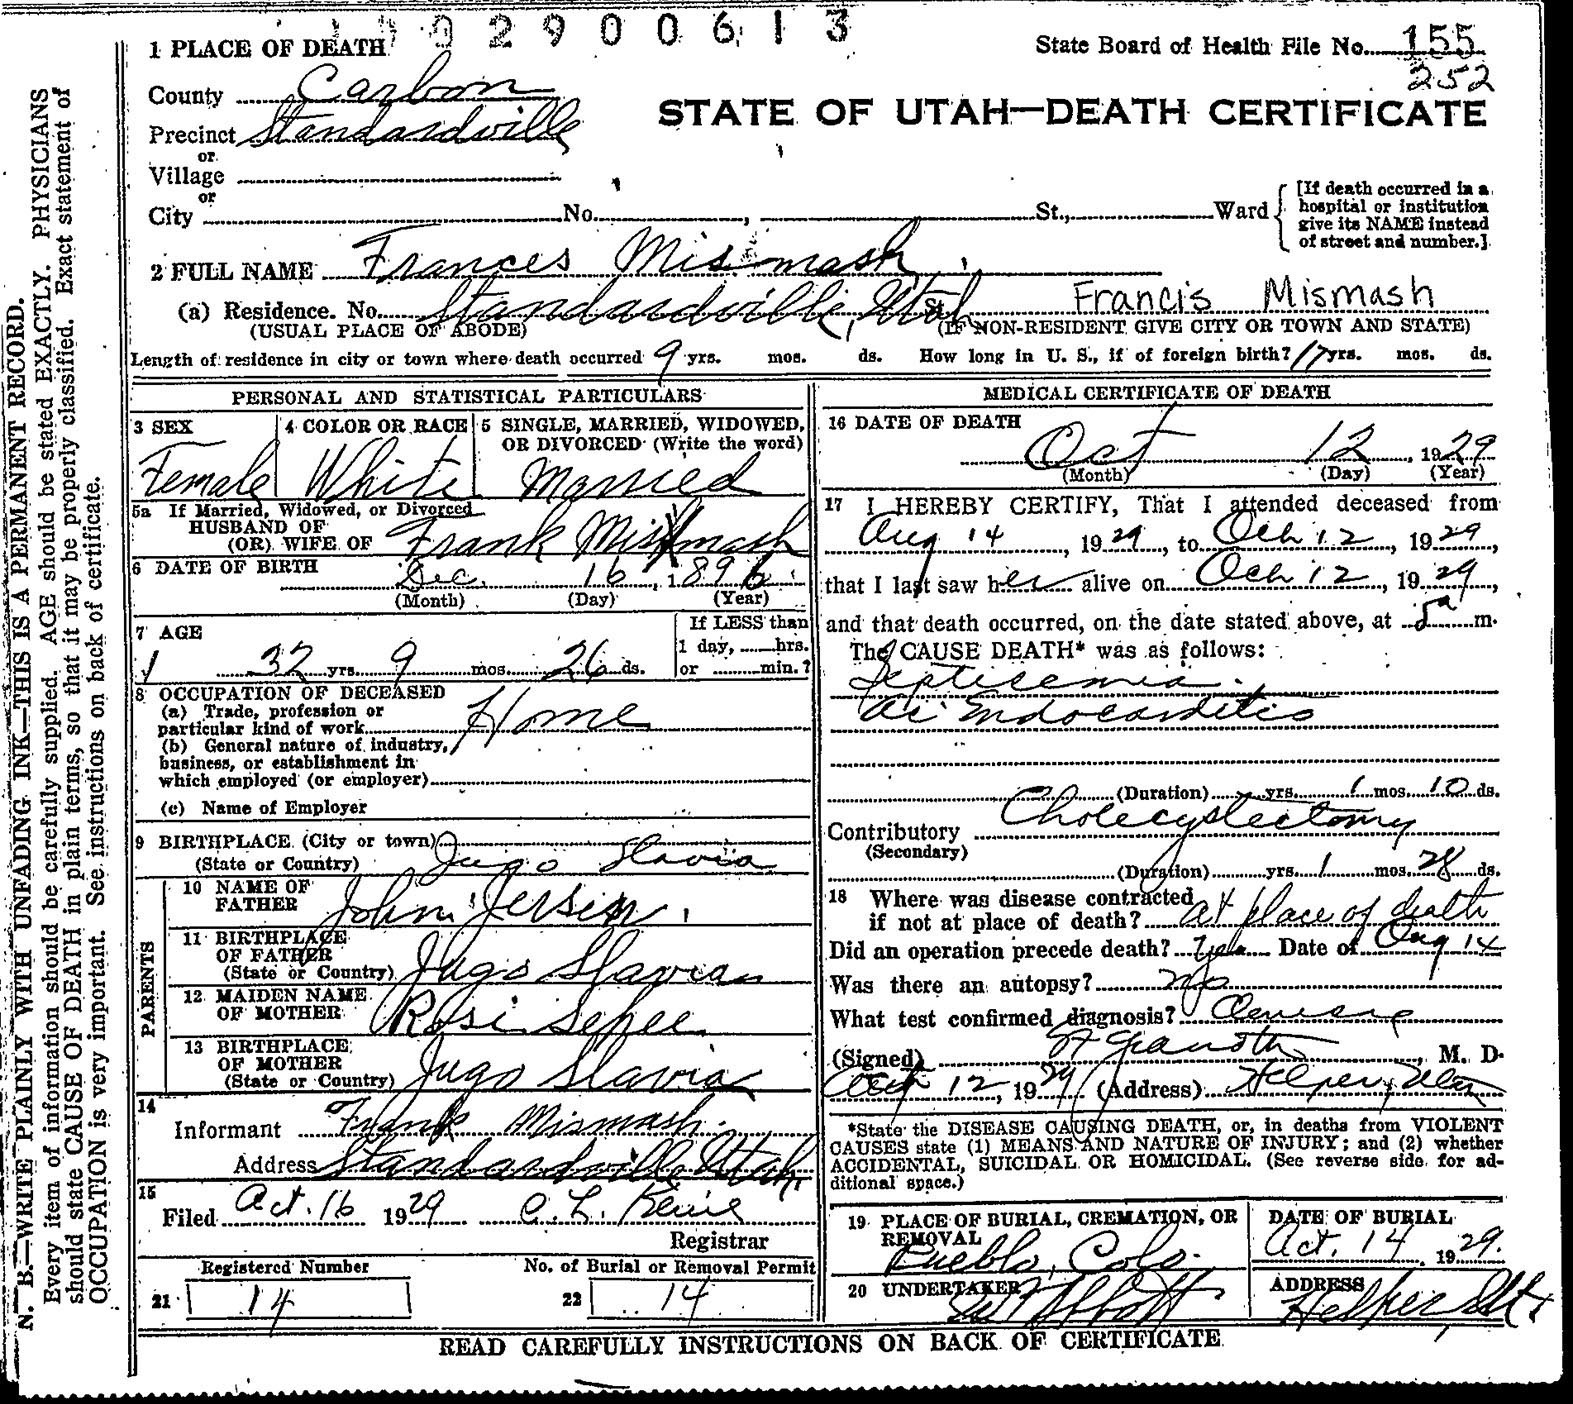 2 9 0 0 6 1 3
1 PLACE OF DEATH
State Board of Health File No. 155
252
County Carbon
STATE OF UTAH—DEATH CERTIFICATE
Precinct Standardville
or
Village
or
City No. , St., Ward
[If death occurred in a hospital or institution give its NAME instead of street and number.]
2 FULL NAME Frances Mismash
(a) Residence. No. Standardville, Utah St. Francis Mismash
(USUAL PLACE OF ABODE) (IF NON-RESIDENT GIVE CITY OR TOWN AND STATE)
Length of residence in city or town where death occurred 9 yrs. mos. ds. How long in U. S., if of foreign birth? 17 yrs. mos. ds.
PERSONAL AND STATISTICAL PARTICULARS
3 SEX 4 COLOR OR RACE 5 SINGLE, MARRIED, WIDOWED, OR DIVORCED (Write the word)
Female White Married
5a If Married, Widowed, or Divorced
HUSBAND OF
(OR) WIFE OF Frank Mismash
6 DATE OF BIRTH Dec. 16, 1896
(Month) (Day) (Year)
7 AGE
32 yrs. 9 mos. 26 ds.
If LESS than
1 day, hrs.
or min.?
8 OCCUPATION OF DECEASED
(a) Trade, profession or
particular kind of work Home
(b) General nature of industry,
business, or establishment in
which employed (or employer)
(c) Name of Employer
9 BIRTHPLACE (City or town)
(State or Country) Jugo Slavia
PARENTS
10 NAME OF
FATHER John
11 BIRTHPLACE
OF FATHER
(State or Country) Jugo Slavia
12 MAIDEN NAME
OF MOTHER Rosi
13 BIRTHPLACE
OF MOTHER
(State or Country) Jugo Slavia
14
Informant Frank Mismash
Address Standardville Utah.
15
Filed Oct. 16 1929 C. L.
Registrar
Registered Number No. of Burial or Removal Permit
21 14 22 14
MEDICAL CERTIFICATE OF DEATH
16 DATE OF DEATH
Oct 12, 1929
(Month) (Day) (Year)
17 I HEREBY CERTIFY, That I attended deceased from
Aug 14, 1929, to Oct 12, 1929,
that I last saw her alive on Oct 12, 1929,
and that death occurred, on the date stated above, at 5a m.
The CAUSE DEATH* was as follows:
Septicemia.
Endocarditis
(Duration) yrs. 1 mos. 10 ds.
Contributory Cholecystectomy
(Secondary)
(Duration) yrs. 1 mos. 28 ds.
18 Where was disease contracted
if not at place of death? at place of death
Did an operation precede death? yes Date of Aug 14
Was there an autopsy? no
What test confirmed diagnosis?
(Signed) , M. D.
Oct 12, 1929 (Address) Helper, Utah
*State the DISEASE CAUSING DEATH, or, in deaths from VIOLENT
CAUSES state (1) MEANS AND NATURE OF INJURY; and (2) whether
ACCIDENTAL, SUICIDAL OR HOMICIDAL. (See reverse side for ad-
ditional space.)
19 PLACE OF BURIAL, CREMATION, OR REMOVAL DATE OF BURIAL
Pueblo, Colo. Oct. 14 1929.
20 UNDERTAKER ADDRESS
Abbott Helper, Ut.
READ CAREFULLY INSTRUCTIONS ON BACK OF CERTIFICATE
N. B.—WRITE PLAINLY WITH UNFADING INK—THIS IS A PERMANENT RECORD.
Every item of information should be carefully supplied. AGE should be stated EXACTLY. PHYSICIANS
should state CAUSE OF DEATH in plain terms, so that it may be properly classified. Exact statement of
OCCUPATION is very important. See instructions on back of certificate.